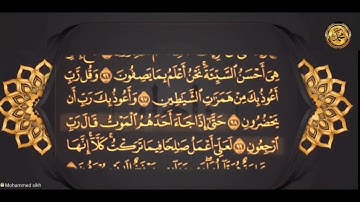 هِىَ أَحْسَنُ ٱلسَّيِّئَةَ ۚ نَحْنُ أَعْلَمُ بِمَا يَصِفُونَ ٩٦ وَقُل رَّبِّ
أَعُوذُ بِكَ مِنْ هَمَزَٰتِ ٱلشَّيَٰطِينِ ٩٧ وَأَعُوذُ بِكَ رَبِّ أَن
يَحْضُرُونِ ٩٨ حَتَّىٰٓ إِذَا جَآءَ أَحَدَهُمُ ٱلْمَوْتُ قَالَ رَبِّ
ٱرْجِعُونِ ٩٩ لَعَلِّىٓ أَعْمَلُ صَٰلِحًا فِيمَا تَرَكْتُ ۚ كَلَّآ ۚ إِنَّهَا
Mohammed sikh